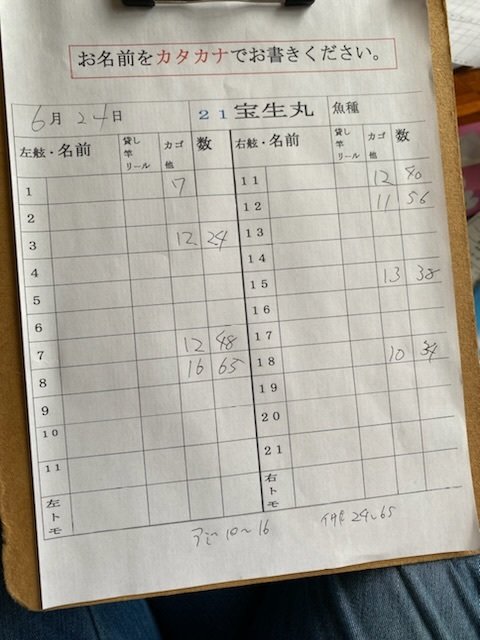 お名前をカタカナでお書きください。
6月 24日 21宝生丸 魚種
左舷・名前 貸し竿リール カゴ他 数 右舷・名前 貸し竿リール カゴ他 数
1 7 11 12 40
2 12 11 56
3 12 24 13
4 14
5 15 13 38
6 16
7 12 48 17
8 16 65 18 10 34
9 19
10 20
11 21
左トモ 右トモ
10〜16 24〜65